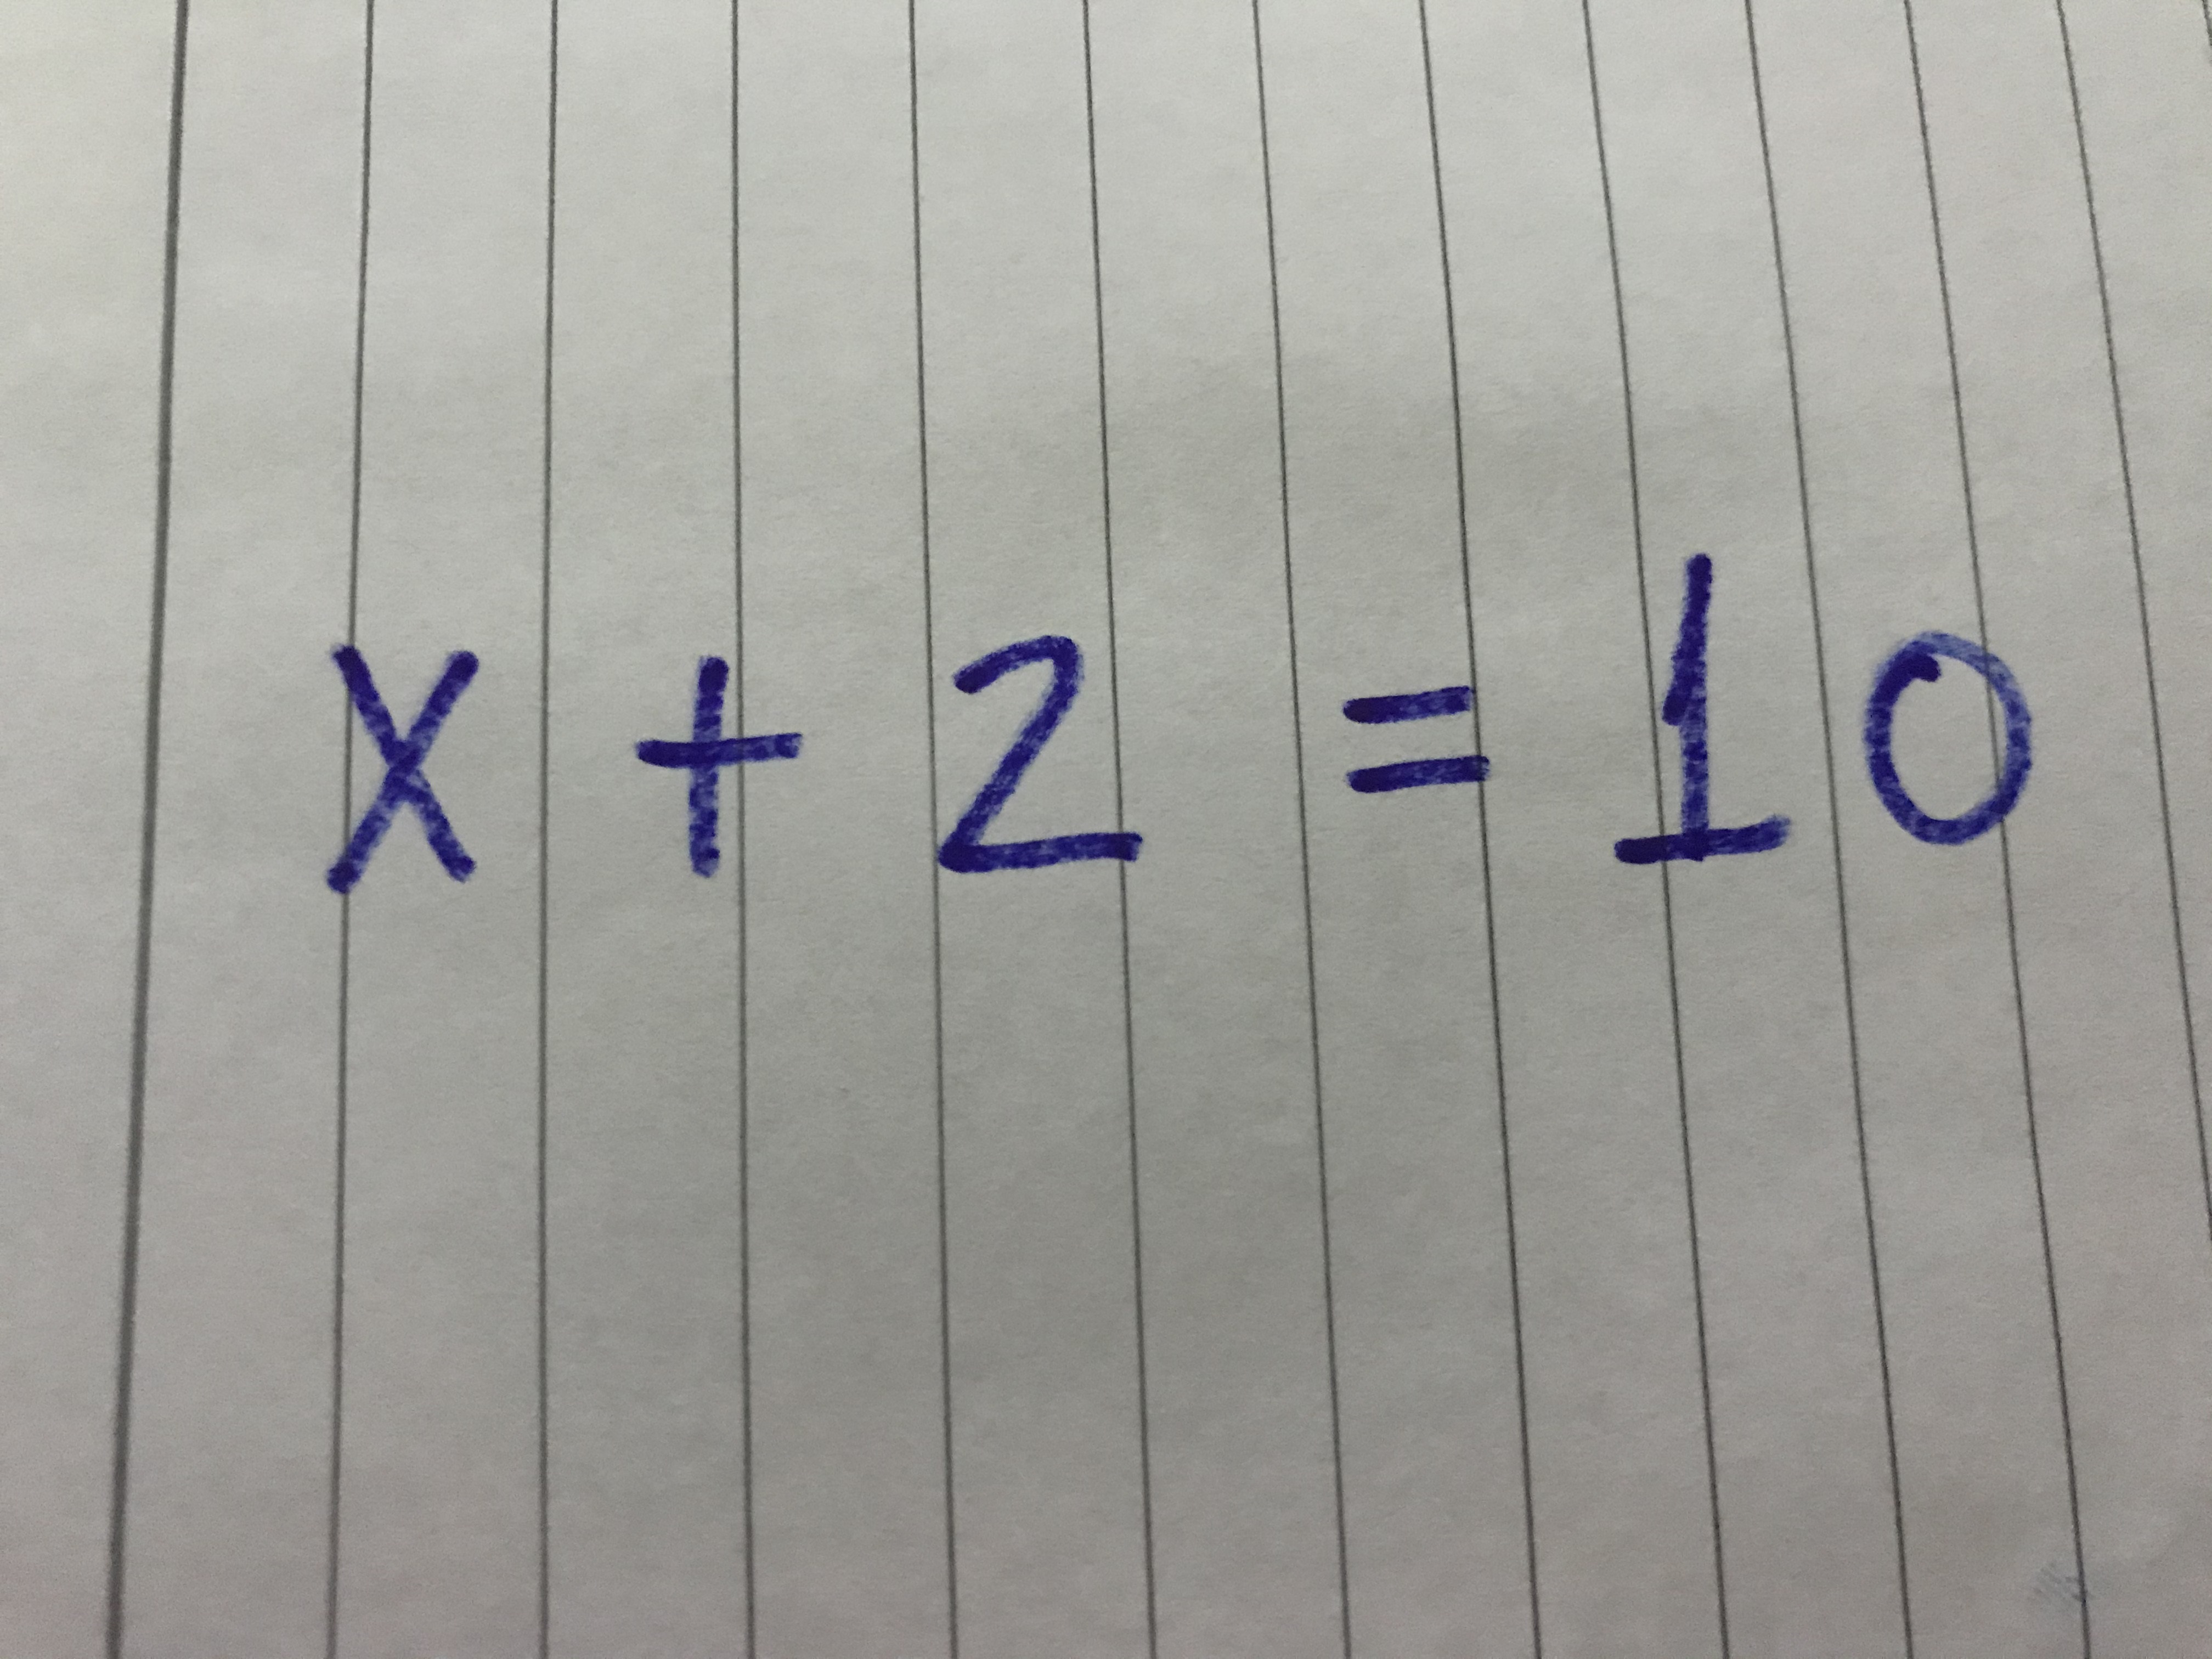 x + 2 = 10